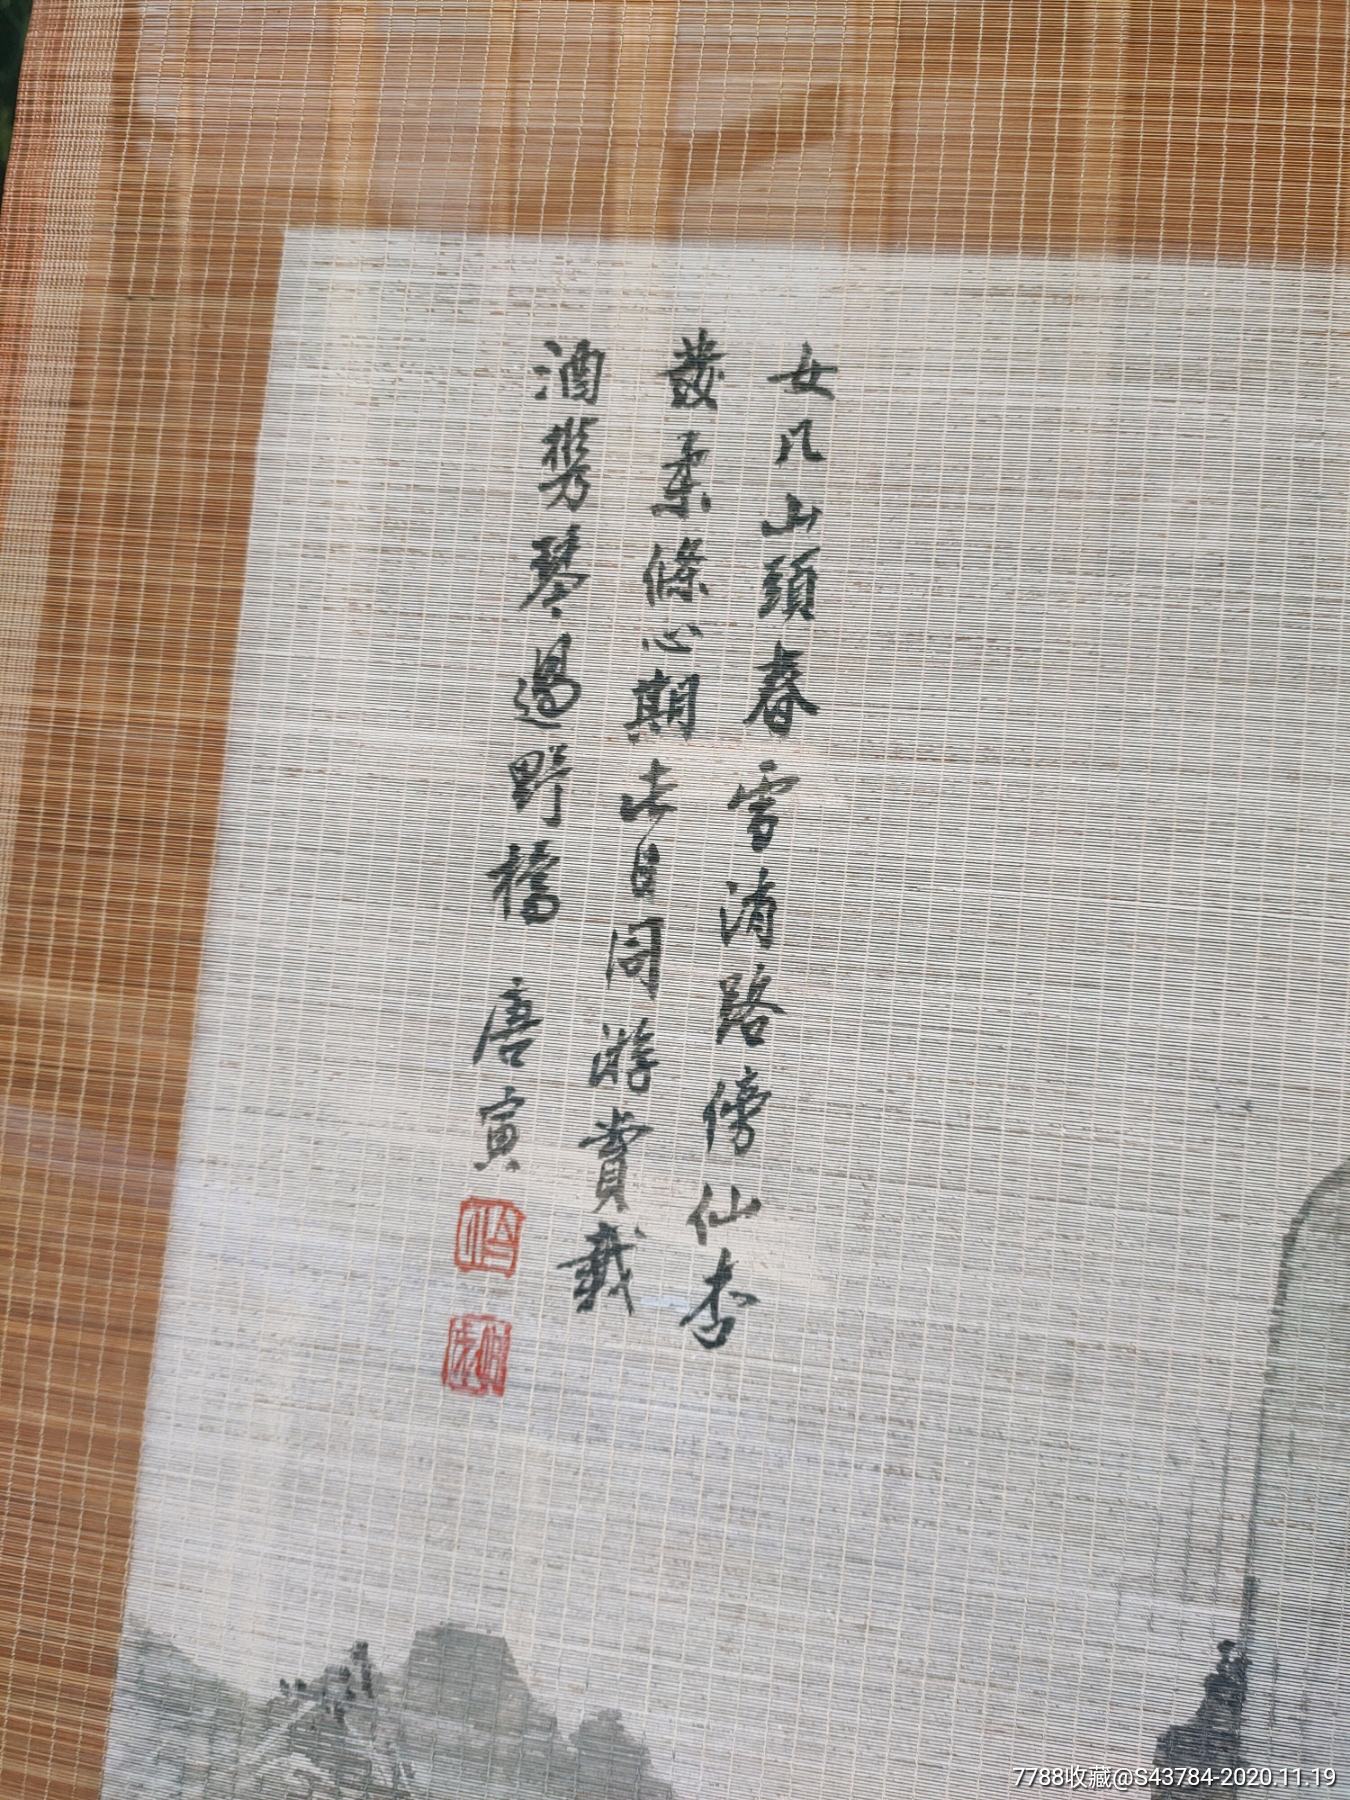 女几山頭春雪消路傍仙杏
發柔條心期此日同游賞載
酒携琴過野橋 唐寅
7788收藏@S43784-2020.11.19